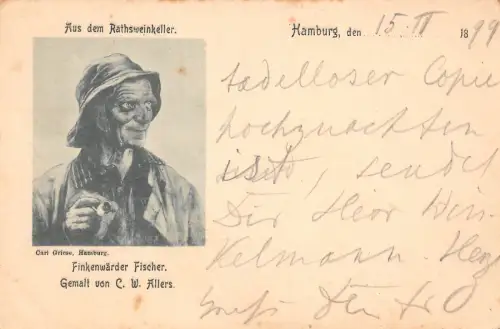 Aus dem Rathsweinkeller.
Hamburg, den 15. II 1899
tadelloser Copie
ist, sendet
Dir Herr Win-
kelmann. Herz
Carl Griese, Hamburg.
Finkenwärder Fischer.
Gemalt von C. W. Allers.